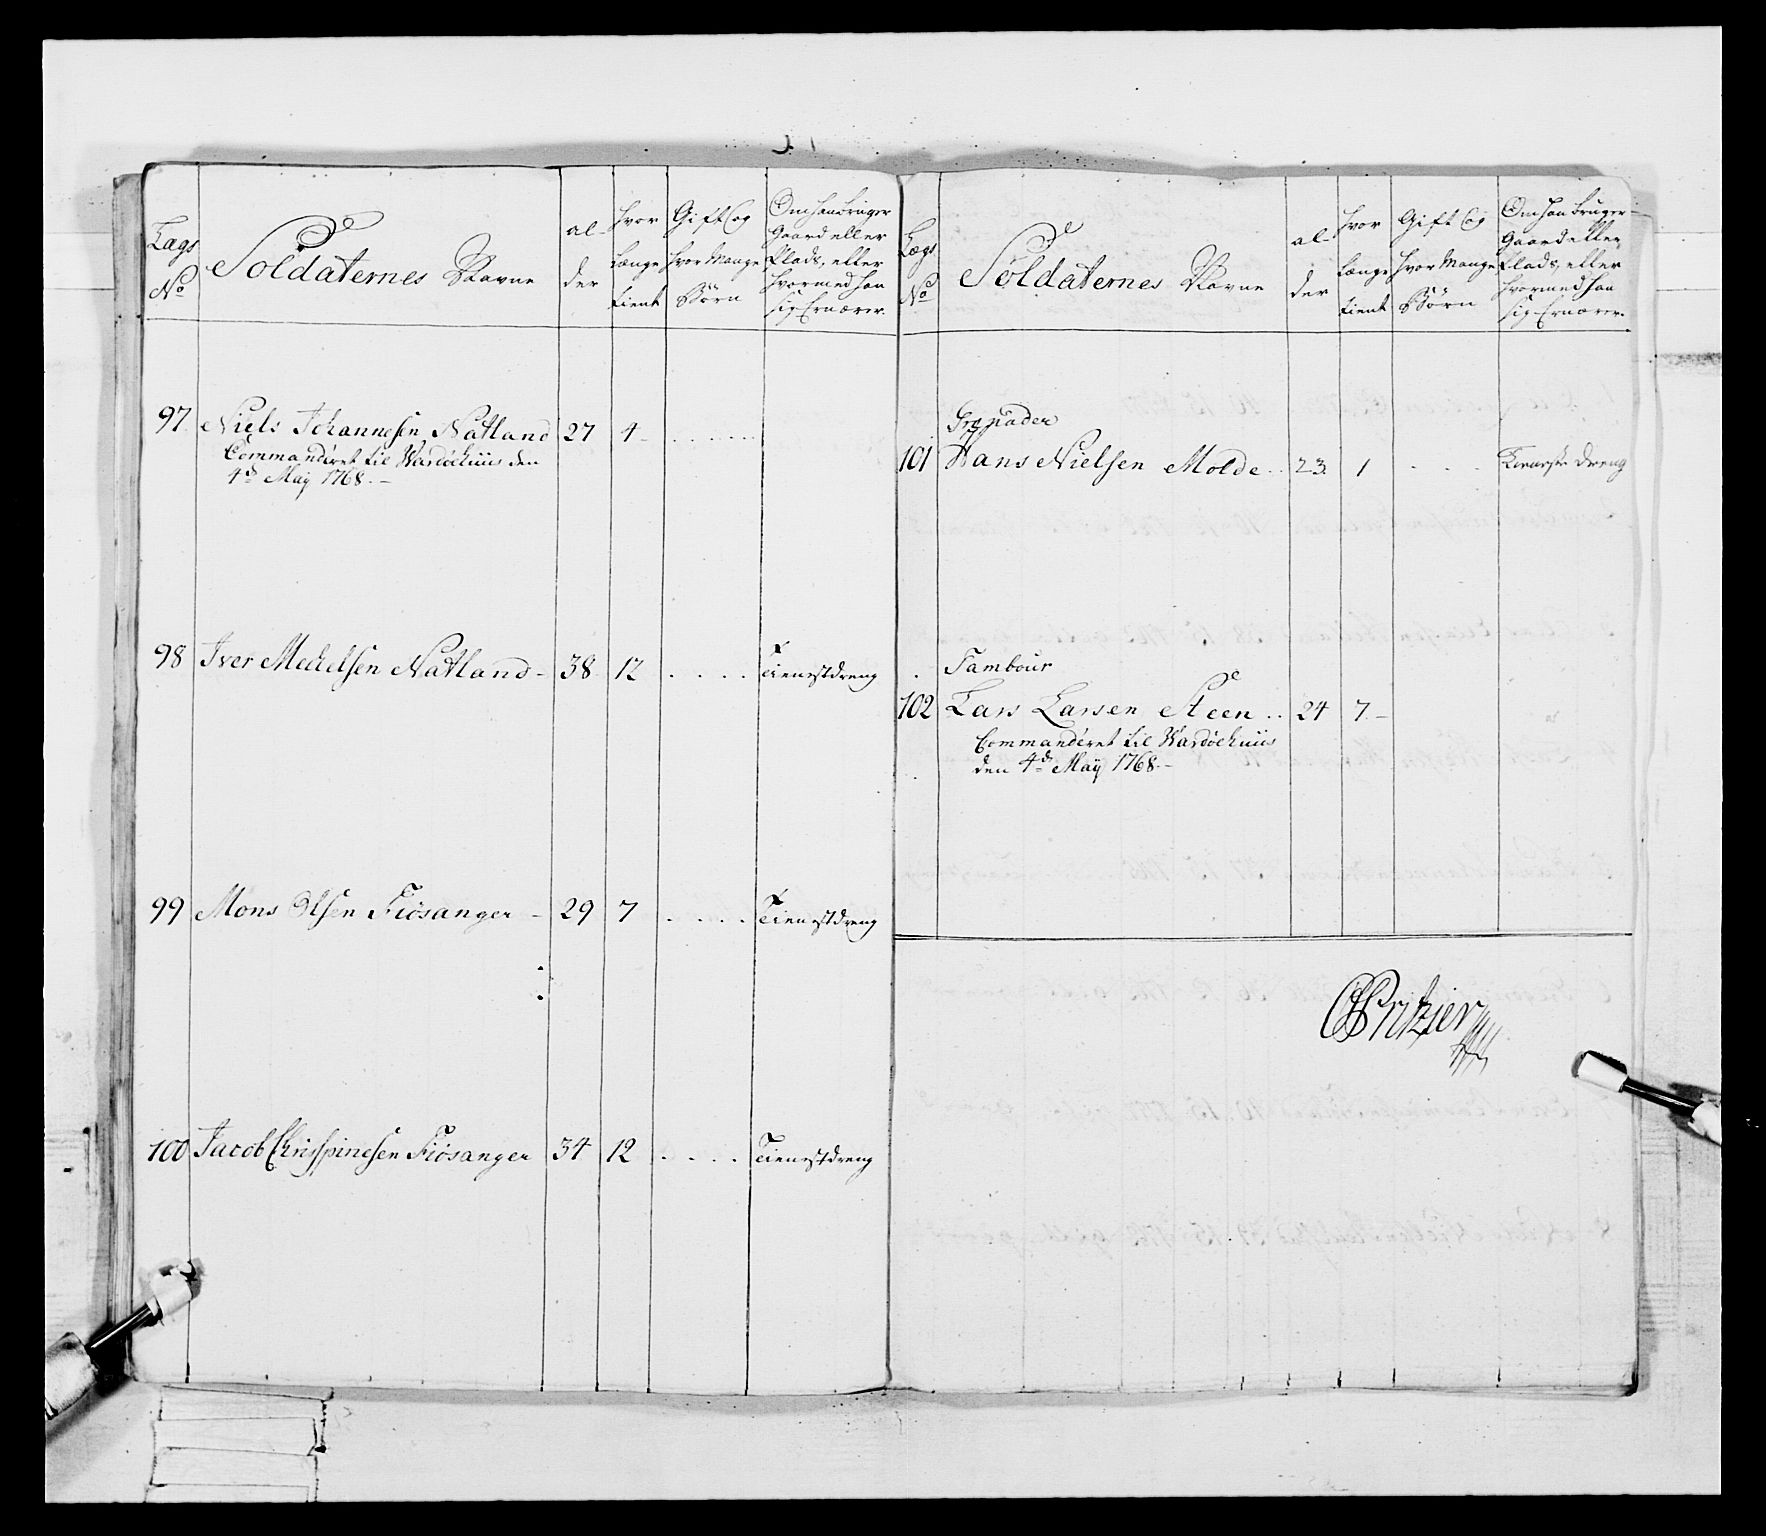 Lægs No
Soldaternes Navne
al-der
Hvor længe tient
Gift Og hvor Mange Börn
Om han bruger Gaard eller Plads, eller hvormed han sig Ernærer.
97 Niels Johannesen Natland 27 4 - . . . . . .
Commanderet til Wardöehuus den
4de Maÿ 1768. -
98 Iver Mechelsen Natland - 38 12 . . . . Tienestdreng
99 Mons Olsen Fiösanger - 29 7 . . . . Tienestdreng
100 Jacob Chrispinesen Fiösanger 34 12 . . . . Tienestdreng
Lægs No
Soldaternes Navne
al-der
Hvor længe tient
Gift Og hvor Mange Börn
Om han bruger Gaard eller Plads, eller hvormed han sig Ernærer.
Grenader
101 Hans Nielsen Molde . . 23. 1 . . . dreng
Tambour
102 Lars Larsen Steen . . 24 7 -
Commanderet til Wardöehuus
den 4de Maÿ 1768. -